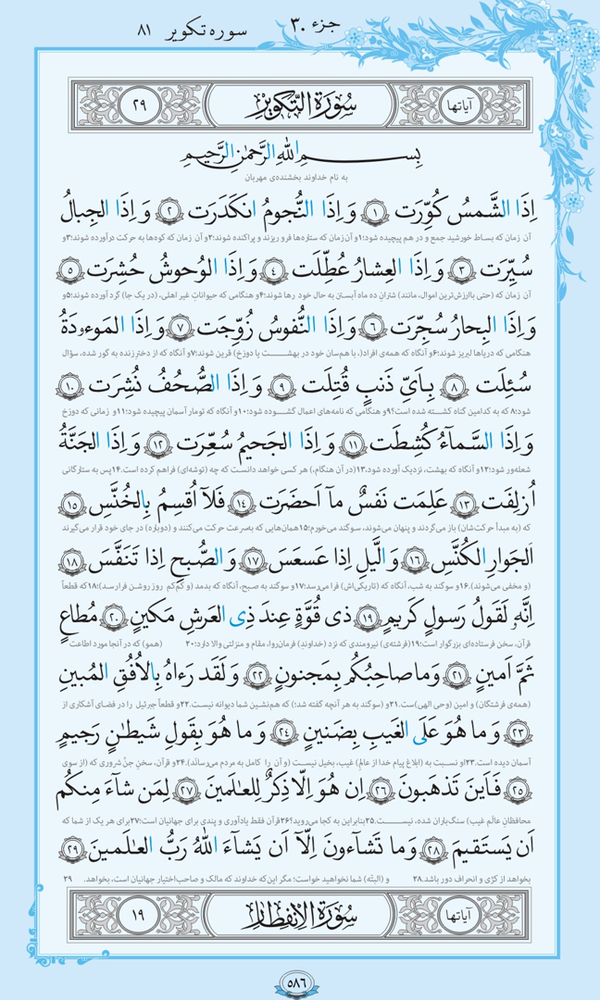 جزء ۳۰ سوره تکویر ۸۱
آیاتها سُورَةُ التَّكوِيرِ ۲۹
بِسمِ اللهِ الرَّحمٰنِ الرَّحيمِ
به نام خداوند بخشنده‌ی مهربان
اِذَا الشَّمسُ كُوِّرَت ۱ وَ اِذَا النُّجومُ انكَدَرَت ۲ وَ اِذَا الجِبالُ
آن زمان که بساط خورشید جمع و در هم پیچیده شود؛۱و آن زمان که ستاره‌ها فرو ریزند و پراکنده شوند؛۲و آن زمان که کوه‌ها به حرکت درآورده شوند؛۳و
سُيِّرَت ۳ وَ اِذَا العِشارُ عُطِّلَت ۴ وَ اِذَا الوُحوشُ حُشِرَت ۵
آن زمان که (حتی باارزش‌ترین اموال، مانند) شتران ده ماه آبستن به حال خود رها شوند؛۴و هنگامی که حیوانات غیر اهلی، (در یک جا) گرد آورده شوند؛۵و
وَ اِذَا البِحارُ سُجِّرَت ۶ وَ اِذَا النُّفوسُ زُوِّجَت ۷ وَ اِذَا المَوءودَةُ
هنگامی که دریاها لبریز شوند؛۶و آنگاه که همه‌ی افراد(، با هم‌سان خود در بهشت یا دوزخ) قرین شوند؛۷و آنگاه که از دختر زنده به گور شده، سؤال
سُئِلَت ۸ بِاَيِّ ذَنبٍ قُتِلَت ۹ وَ اِذَا الصُّحُفُ نُشِرَت ۱۰
شود:۸ که به کدامین گناه کشته شده است؟۹و هنگامی که نامه‌های اعمال گشوده شود؛۱۰و آنگاه که تومار آسمان پیچیده شود؛۱۱و زمانی که دوزخ
وَ اِذَا السَّماءُ كُشِطَت ۱۱ وَ اِذَا الجَحيمُ سُعِّرَت ۱۲ وَ اِذَا الجَنَّةُ
شعله‌ور شود؛۱۲و آنگاه که بهشت، نزدیک آورده شود،۱۳(در آن هنگام،) هر کسی خواهد دانست که چه (توشه‌ای) فراهم کرده است.۱۴پس به ستارگانی
اُزلِفَت ۱۳ عَلِمَت نَفسٌ ما اَحضَرَت ۱۴ فَلا اُقسِمُ بِالخُنَّسِ ۱۵
که (به مبدأ حرکت‌شان) باز می‌گردند و پنهان می‌شوند، سوگند می‌خورم؛۱۵همان‌هایی که به‌سرعت حرکت می‌کنند و (دوباره) در جای خود قرار می‌گیرند
اَلجَوارِ الكُنَّسِ ۱۶ وَ الَّيلِ اِذا عَسعَسَ ۱۷ وَ الصُّبحِ اِذا تَنَفَّسَ ۱۸
(و مخفی می‌شوند).۱۶و سوگند به شب، آنگاه که (تاریکی‌اش) فرا می‌رسد؛۱۷و سوگند به صبح، آنگاه که بدمد (و کم‌کم روز روشن فرا رسد)؛۱۸که قطعاً
اِنَّهُ لَقَولُ رَسولٍ كَريمٍ ۱۹ ذي قُوَّةٍ عِندَ ذِي العَرشِ مَكينٍ ۲۰ مُطاعٍ
قرآن، سخن فرستاده‌ای بزرگوار است؛۱۹(فرشته‌ی) نیرومندی که نزد (خداوندِ) فرمان‌روا، مقام و منزلتی والا دارد؛۲۰ (همو) که در آنجا مورد اطاعت
ثَمَّ اَمينٍ ۲۱ وَ ما صاحِبُكُم بِمَجنونٍ ۲۲ وَ لَقَد رَءاهُ بِالاُفُقِ المُبينِ
(همه‌ی فرشتگان) و امین (وحی الهی)ست.۲۱و (سوگند به هر آنچه گفته شد؛) که هم‌نشین شما دیوانه نیست.۲۲و قطعاً جبرئیل را در فضای آشکاری از
۲۳ وَ ما هُوَ عَلَى الغَيبِ بِضَنينٍ ۲۴ وَ ما هُوَ بِقَولِ شَيطٰنٍ رَجيمٍ
آسمان دیده است.۲۳او نسبت به (ابلاغ پیام خدا از عالمِ) غیب، بخیل نیست (و آن را کامل به مردم می‌رساند).۲۴و قرآن، سخنِ جنِّ شروری که (از سوی
۲۵ فَاَينَ تَذهَبونَ ۲۶ اِن هُوَ اِلّا ذِكرٌ لِلعالَمينَ ۲۷ لِمَن شاءَ مِنكُم
محافظانِ عالَمِ غیب) سنگ‌باران شده، نیست.۲۵بنابراین به کجا می‌روید؟۲۶قرآن فقط یادآوری و پندی برای جهانیان است؛۲۷برای هر یک از شما که
اَن يَستَقيمَ ۲۸ وَ ما تَشاءونَ اِلّا اَن يَشاءَ اللهُ رَبُّ العٰلَمينَ ۲۹
بخواهد از کژی و انحراف دور باشد.۲۸ و (البتّه) شما نخواهید خواست؛ مگر این‌که خداوند که مالک و صاحب‌اختیار جهانیان است، بخواهد. ۲۹
آیاتها سُورَةُ الاِنفِطارِ ۱۹
۵۸۶